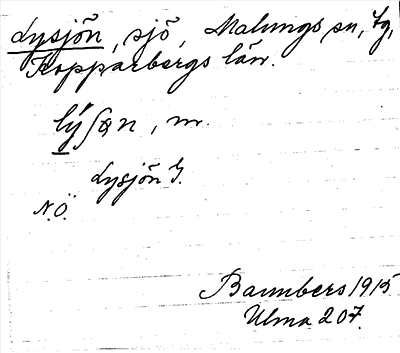 Lysjön, sjö, Malungs sn, tg,
Kopparbergs län.
lý∫ɷn, m.
Lysjön G.
N.Ö.
Bannbers 1915
Ulma 207.